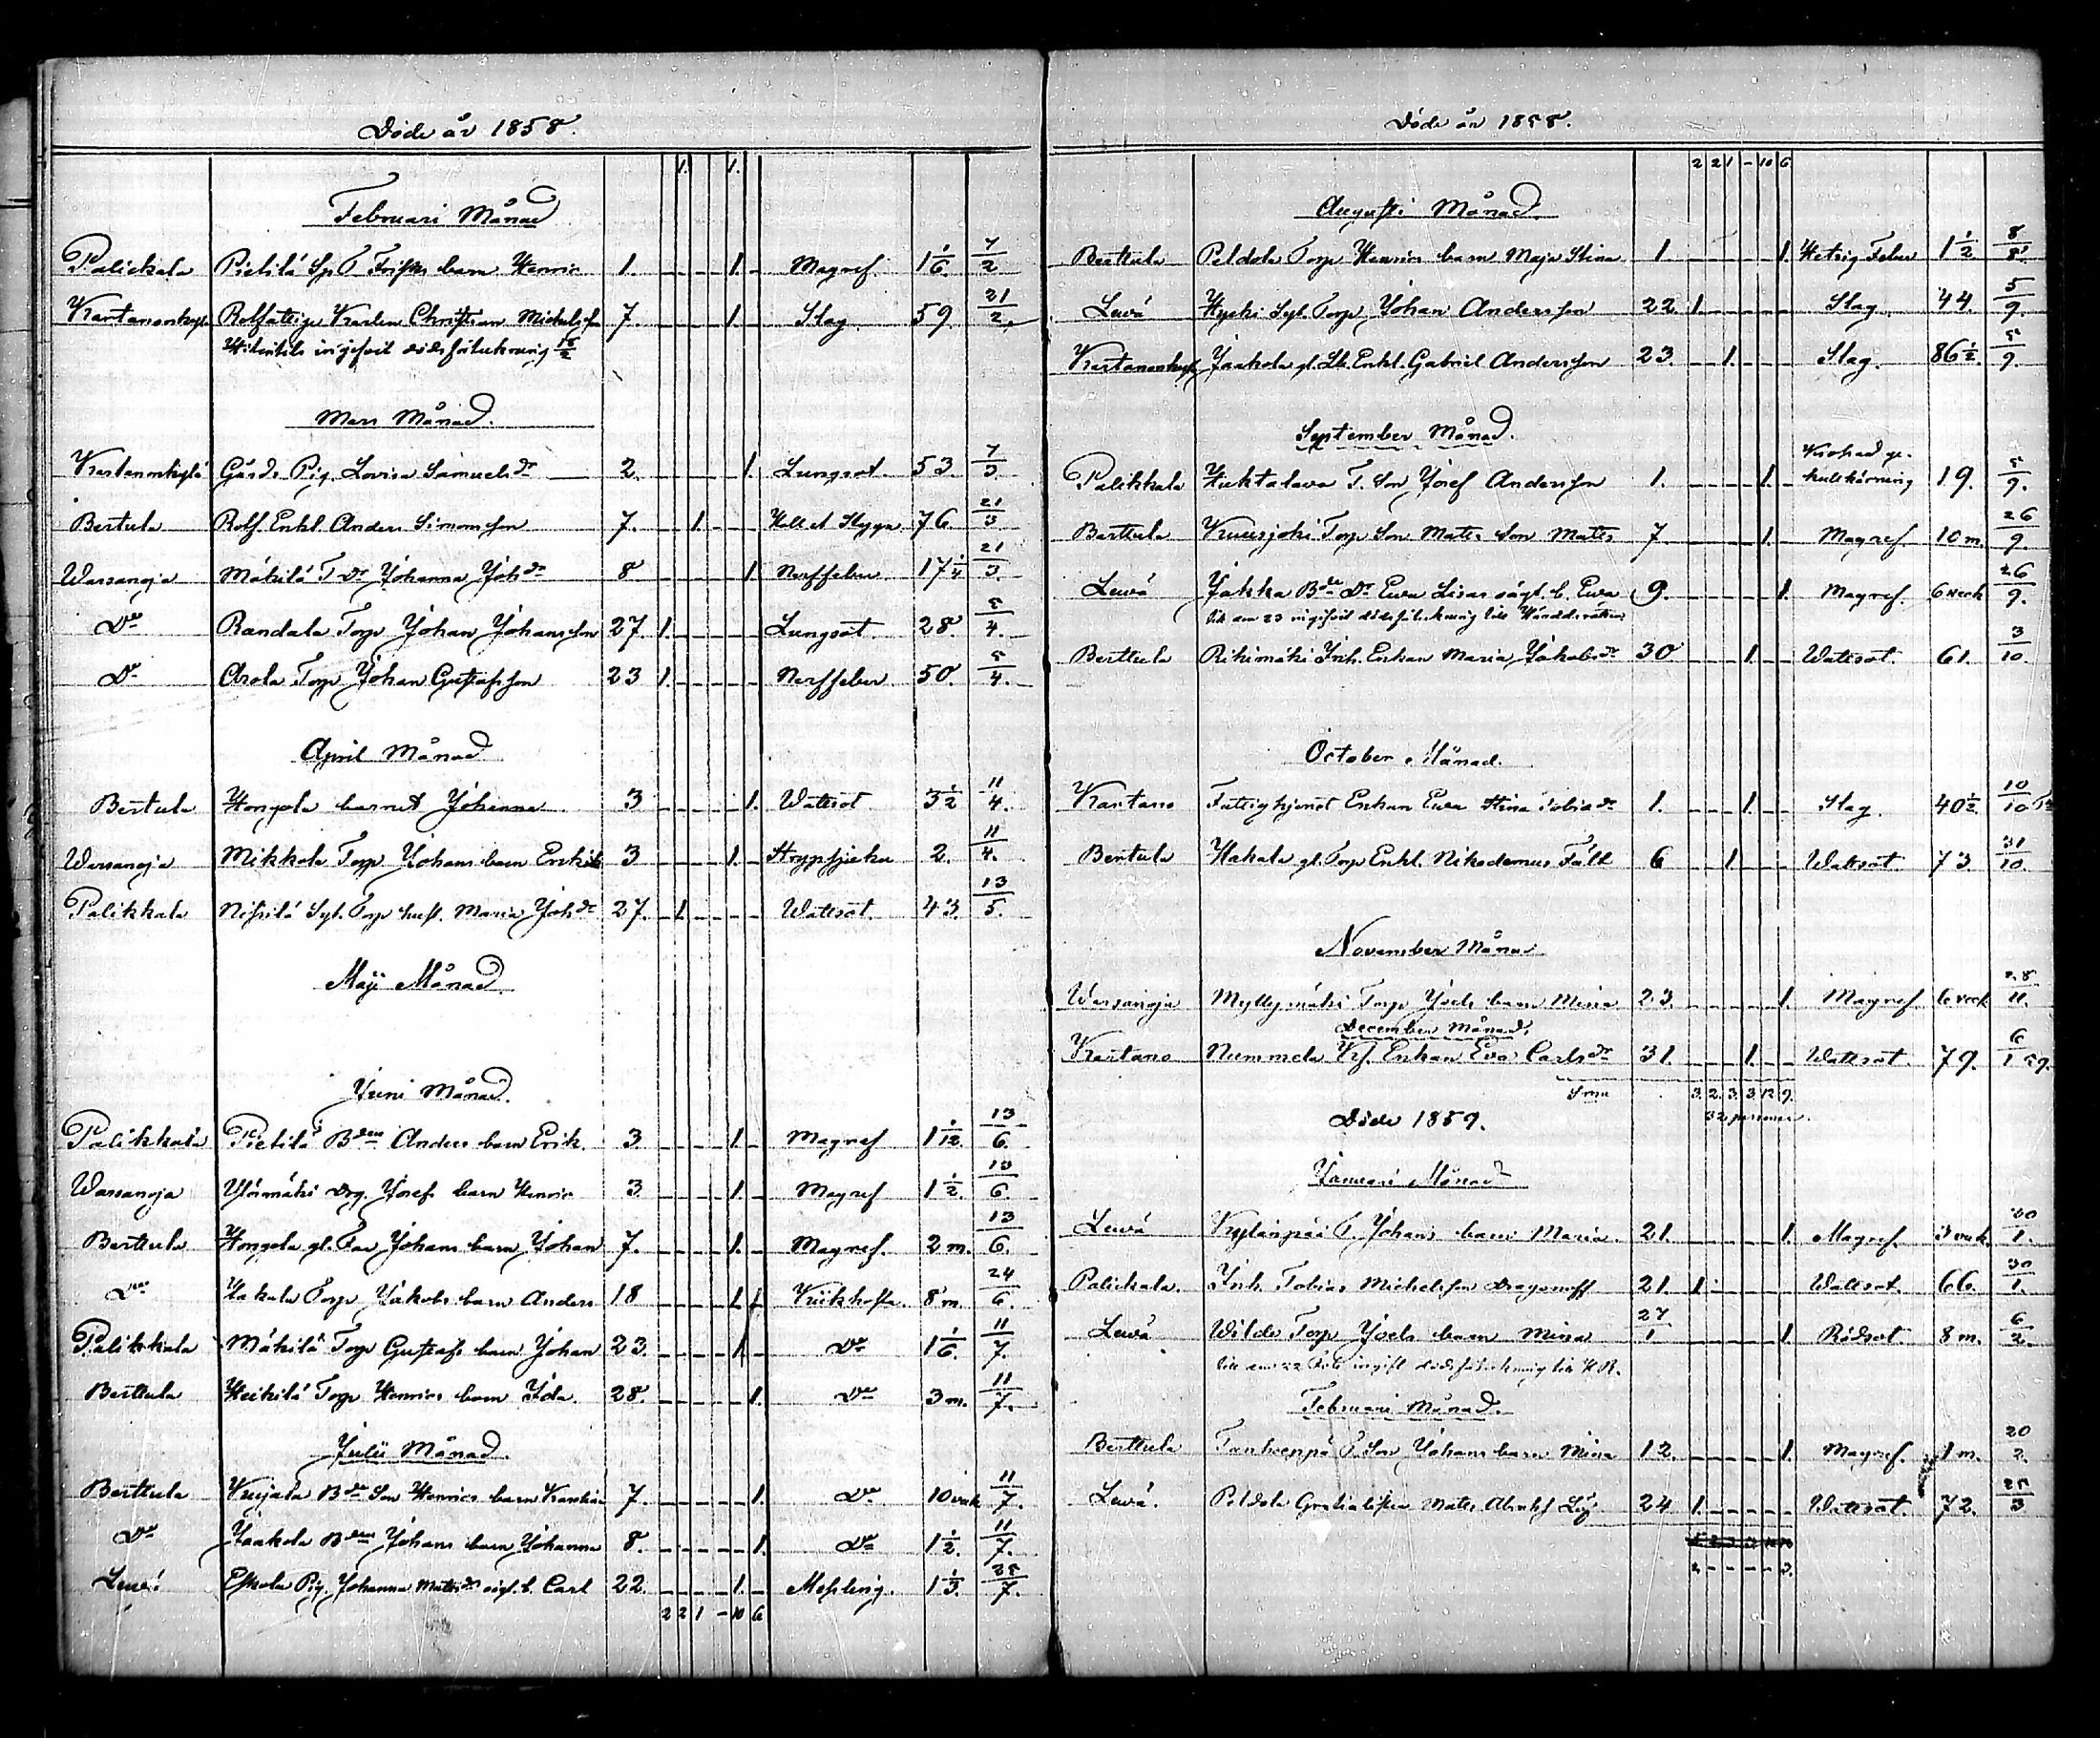 Döde år 1858.
1. 1.
Februari Månad
Palickala Pietilä Sp T. barn Henric 1. 1. Magref. 1 1/6 7/2
Rotfattige Karlen Christian Michelsson 7. 1. Slag. 59 21/2.
ingifvit dödsförtekning 15/2
Mars Månad.
Gårds Pig. Lovisa Samuelsdr 2. 1. Lungsot. 53. 7/3.
Bertula Rotf. Enkl. Anders Simonsson 7. 1. Håll o Stygn 76. 21/3
Warsanoja Mäkilä T dr Johanna Johdr 8 1. Nerffeber 17 1/4 21/3.
Do Randala Torp Johan Johansson 27. 1. Lungsot. 28. 5/4.
Do Arola Torp Johan Gustafsson 23 1. Nerffeber. 50. 5/4.
April Månad
Bertula Hongola barnet Johanna 3 1. Wattsot 3 1/2 11/4.
Warsanoja Mikkola Torp Johans barn Erik 3 1. Strypsjuka 2. 11/4.
Palikkala Syt. Torp hust. Maria Johdr 27. 1. Wattsot. 43. 13/5.
Maji Månad.
Juni Månad.
Palikkala Pietilä Bden Anders barn Erik. 3. 1. Magref 1 1/12. 13/6.
Warsanoja Drg. Josefs barn Henric 3. 1. Magref 1 1/2. 13/6.
Berttula Hongola gl. Johans barn Johan 7. 1. Magref. 2 m. 13/6.
Do Hakala Torp Jakobs barn Anders 18 1. 1 Kikhosta. 8 m. 24/6.
Palikkala Mäkilä Torp Gustafs barn Johan 23. 1. Do 1 1/6. 11/7.
Berttula Heikilä Torp Henrics barn Ida. 28. 1. Do 3 m. 11/7.
Julii Månad.
Berttula Kujala Bde Son Henrics barn 7. 1. Do 10 vek 11/7.
Do Jaakola Bden Johans barn Johanna 8. 1. Do 1 1/2. 11/7.
Lewä Eskola Pig. Johanna Mattsdr oägt. b. Carl 22. 1. Meßling. 1 1/3. 25/7.
2 2 1 - 10 6
Döde år 1858.
2 2 1 - 10 6
Augusti Månad.
Berttula Peldola Torp Henrics barn Maja Stina 1. 1. Hetsig Feber 1 1/2 8/8.
Lewä Hyski Syt. Torp Johan Andersson 22. 1. Slag. 44. 5/9.
Jaakola gl. Enkl. Gabriel Andersson 23. 1. Slag. 86 1/2. 5/9.
September Månad.
Palikkala T. Son Josef Andersson 1. 1. kullkörning 19. 5/9.
Berttula Kuusjoki Torp Son Matts Son Matts 7 1. Magref. 10 m. 26/9.
Lewä Jakka Bde Dr Eva Lisas oägt. b. Eva 9. 1. Magref. 6 veck 26/9.
den 23 ingifvit dödsförtekning till Häradsrätten
Berttula Rikimäki Inh. Enkan Maria Jakobsdr 30 1. Wattsot. 61. 3/10.
October Månad.
Kartano Fattighjonet Enkan Eva Stina Tobiadr 1. 1. Slag. 40 1/2. 10/10
Bertula Hakala gl. Torp Enkl. Nikodemus Fält 6 1. Wattsot. 73. 31/10.
November Månad
Warsanoja Myllymäki Torp Joels barn Mina 23. 1. Magref. 6 veck 28/11.
December Månad.
Kartano Nummela Enkan Eva Carlsdr 31. 1. Wattsot. 79. 6/1 59.
Sma 3. 2. 3. 3. 12. 9.
32 personer.
Döde 1859.
Januari Månad
Lewä Kylänpää T. Johans barn Maria. 21. 1. Magref. 3 vek. 30/1.
Palickala. Inh. Tobias Michelsson Dragonoff 21. 1 Wattsot. 66. 30/1.
Lewä Wilds Torp Joels barn Mina 27/1 1. Rödsot. 8 m. 6/2.
den 22 Feb ingift dödsförtekning till H.R.
Februari Månad.
Berttula T. Son Johans barn Mina 12. 1. Magref. 1 m. 20/2.
Lewä. Peldola Gratialisten Matts 24 1. Wattsot. 72. 25/3
2 - - - - 3.